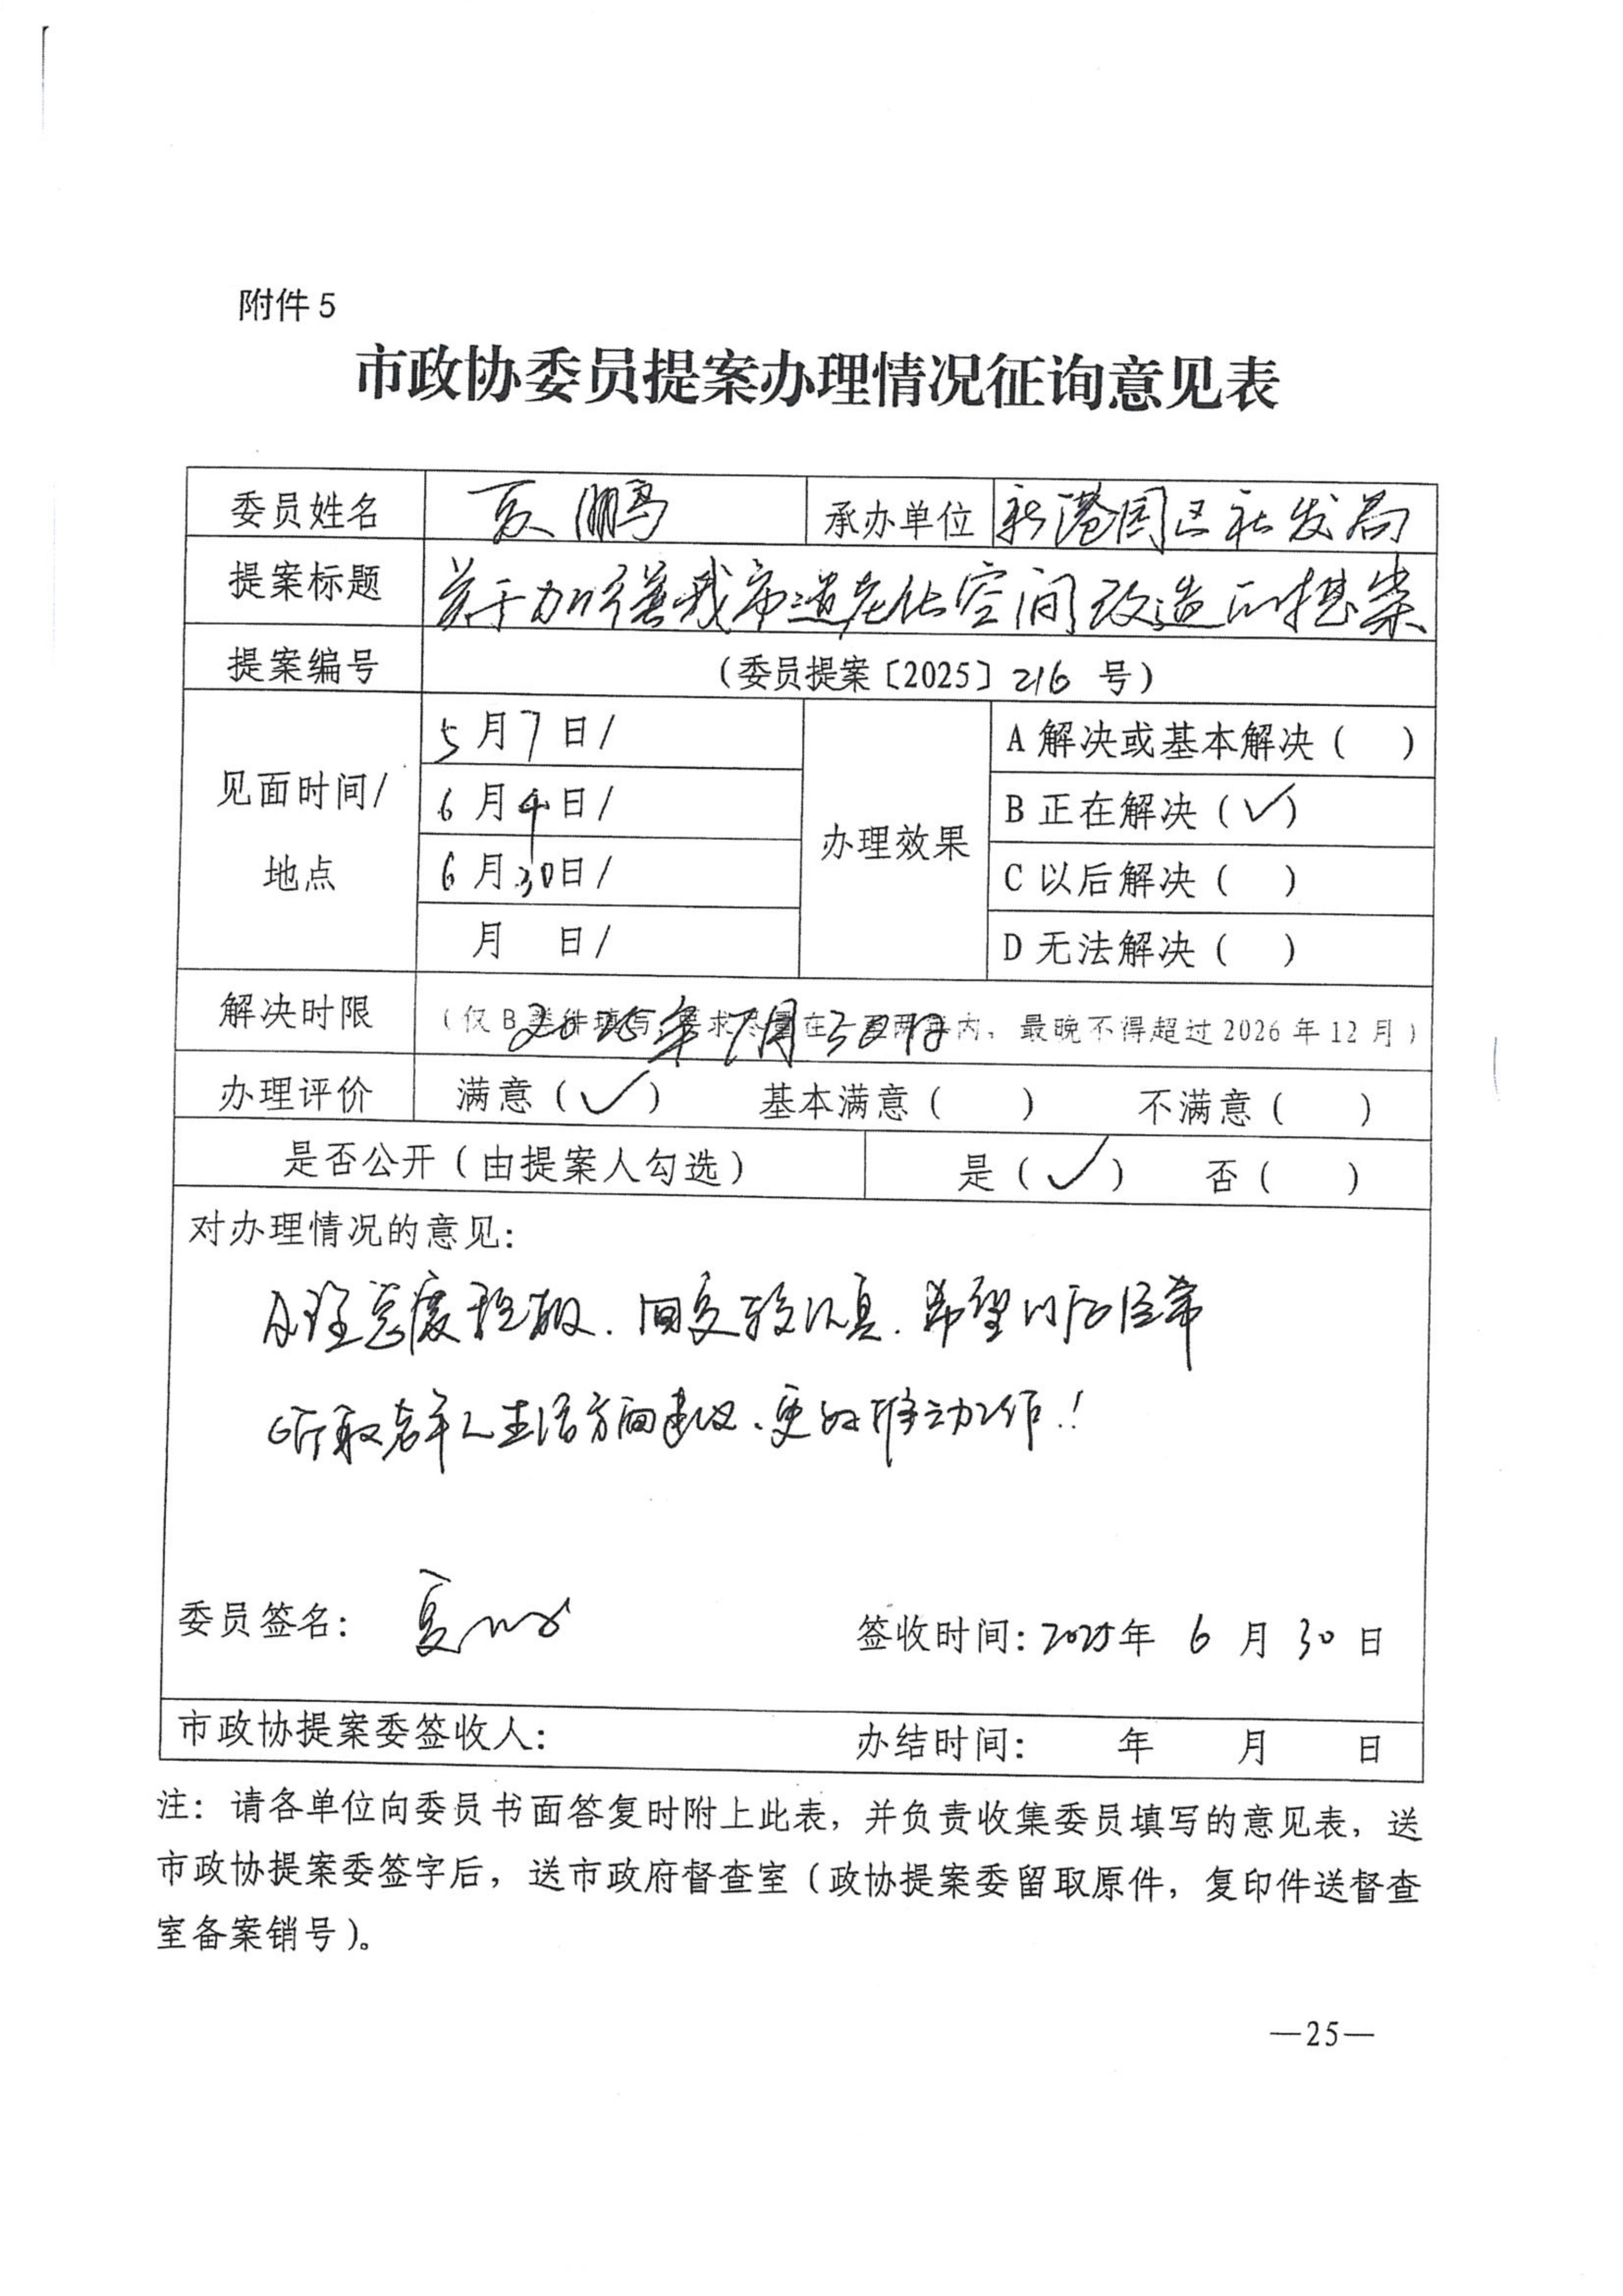 附件5
市政协委员提案办理情况征询意见表
委员姓名 夏鹏 承办单位 新港园区社发局
提案标题 关于加强我市适老化空间改造的提案
提案编号 (委员提案〔2025〕216 号)
见面时间/地点
5月7日/
6月4日/
6月30日/
月 日/
办理效果
A 解决或基本解决( )
B 正在解决(✓)
C 以后解决( )
D 无法解决( )
解决时限 (仅B类件填写,要求尽量在一至两年内,最晚不得超过2026年12月)
年7月30日
办理评价 满意(✓) 基本满意( ) 不满意( )
是否公开(由提案人勾选) 是(✓) 否( )
对办理情况的意见:
办理态度积极、回复较认真.希望以后经常
听取老年人生活方面建议、更好推动工作!
委员签名: 夏 签收时间:2025年 6 月 30 日
市政协提案委签收人: 办结时间: 年 月 日
注:请各单位向委员书面答复时附上此表,并负责收集委员填写的意见表,送
市政协提案委签字后,送市政府督查室(政协提案委留取原件,复印件送督查
室备案销号)。
—25—